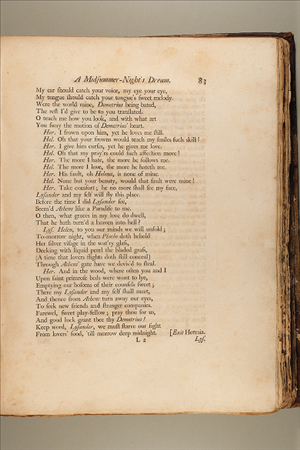 A Midsummer-Night's Dream. 83
My ear should catch your voice, my eye your eye,
My tongue should catch your tongue's sweet melody.
Were the world mine, Demetrius being bated,
The rest I'd give to be to you translated.
O teach me how you look, and with what art
You sway the motion of Demetrius' heart.
Her. I frown upon him, yet he loves me still.
Hel. Oh that your frowns would teach my smiles such skill!
Her. I give him curses, yet he gives me love.
Hel. Oh that my pray'rs could such affection move!
Her. The more I hate, the more he follows me.
Hel. The more I love, the more he hateth me.
Her. His fault, oh Helena, is none of mine.
Hel. None but your beauty, would that fault were mine!
Her. Take comfort; he no more shall see my face,
Lysander and my self will fly this place.
Before the time I did Lysander see,
Seem'd Athens like a Paradise to me.
O then, what graces in my love do dwell,
That he hath turn'd a heaven into hell?
Lys. Helen, to you our minds we will unfold;
To-morrow night, when Phœbe doth behold
Her silver visage in the wat'ry glass,
Decking with liquid pearl the bladed grass,
(A time that lovers flights doth still conceal)
Through Athens' gate have we devis'd to steal.
Her. And in the wood, where often you and I
Upon faint primrose beds were wont to lye,
Emptying our bosoms of their counsels sweet;
There my Lysander and my self shall meet,
And thence from Athens turn away our eyes,
To seek new friends and stranger companies.
Farewel, sweet play-fellow; pray thou for us,
And good luck grant thee thy Demetrius!
Keep word, Lysander, we must starve our sight
From lovers' food, 'till morrow deep midnight. [Exit Hermia.
L 2 Lys.